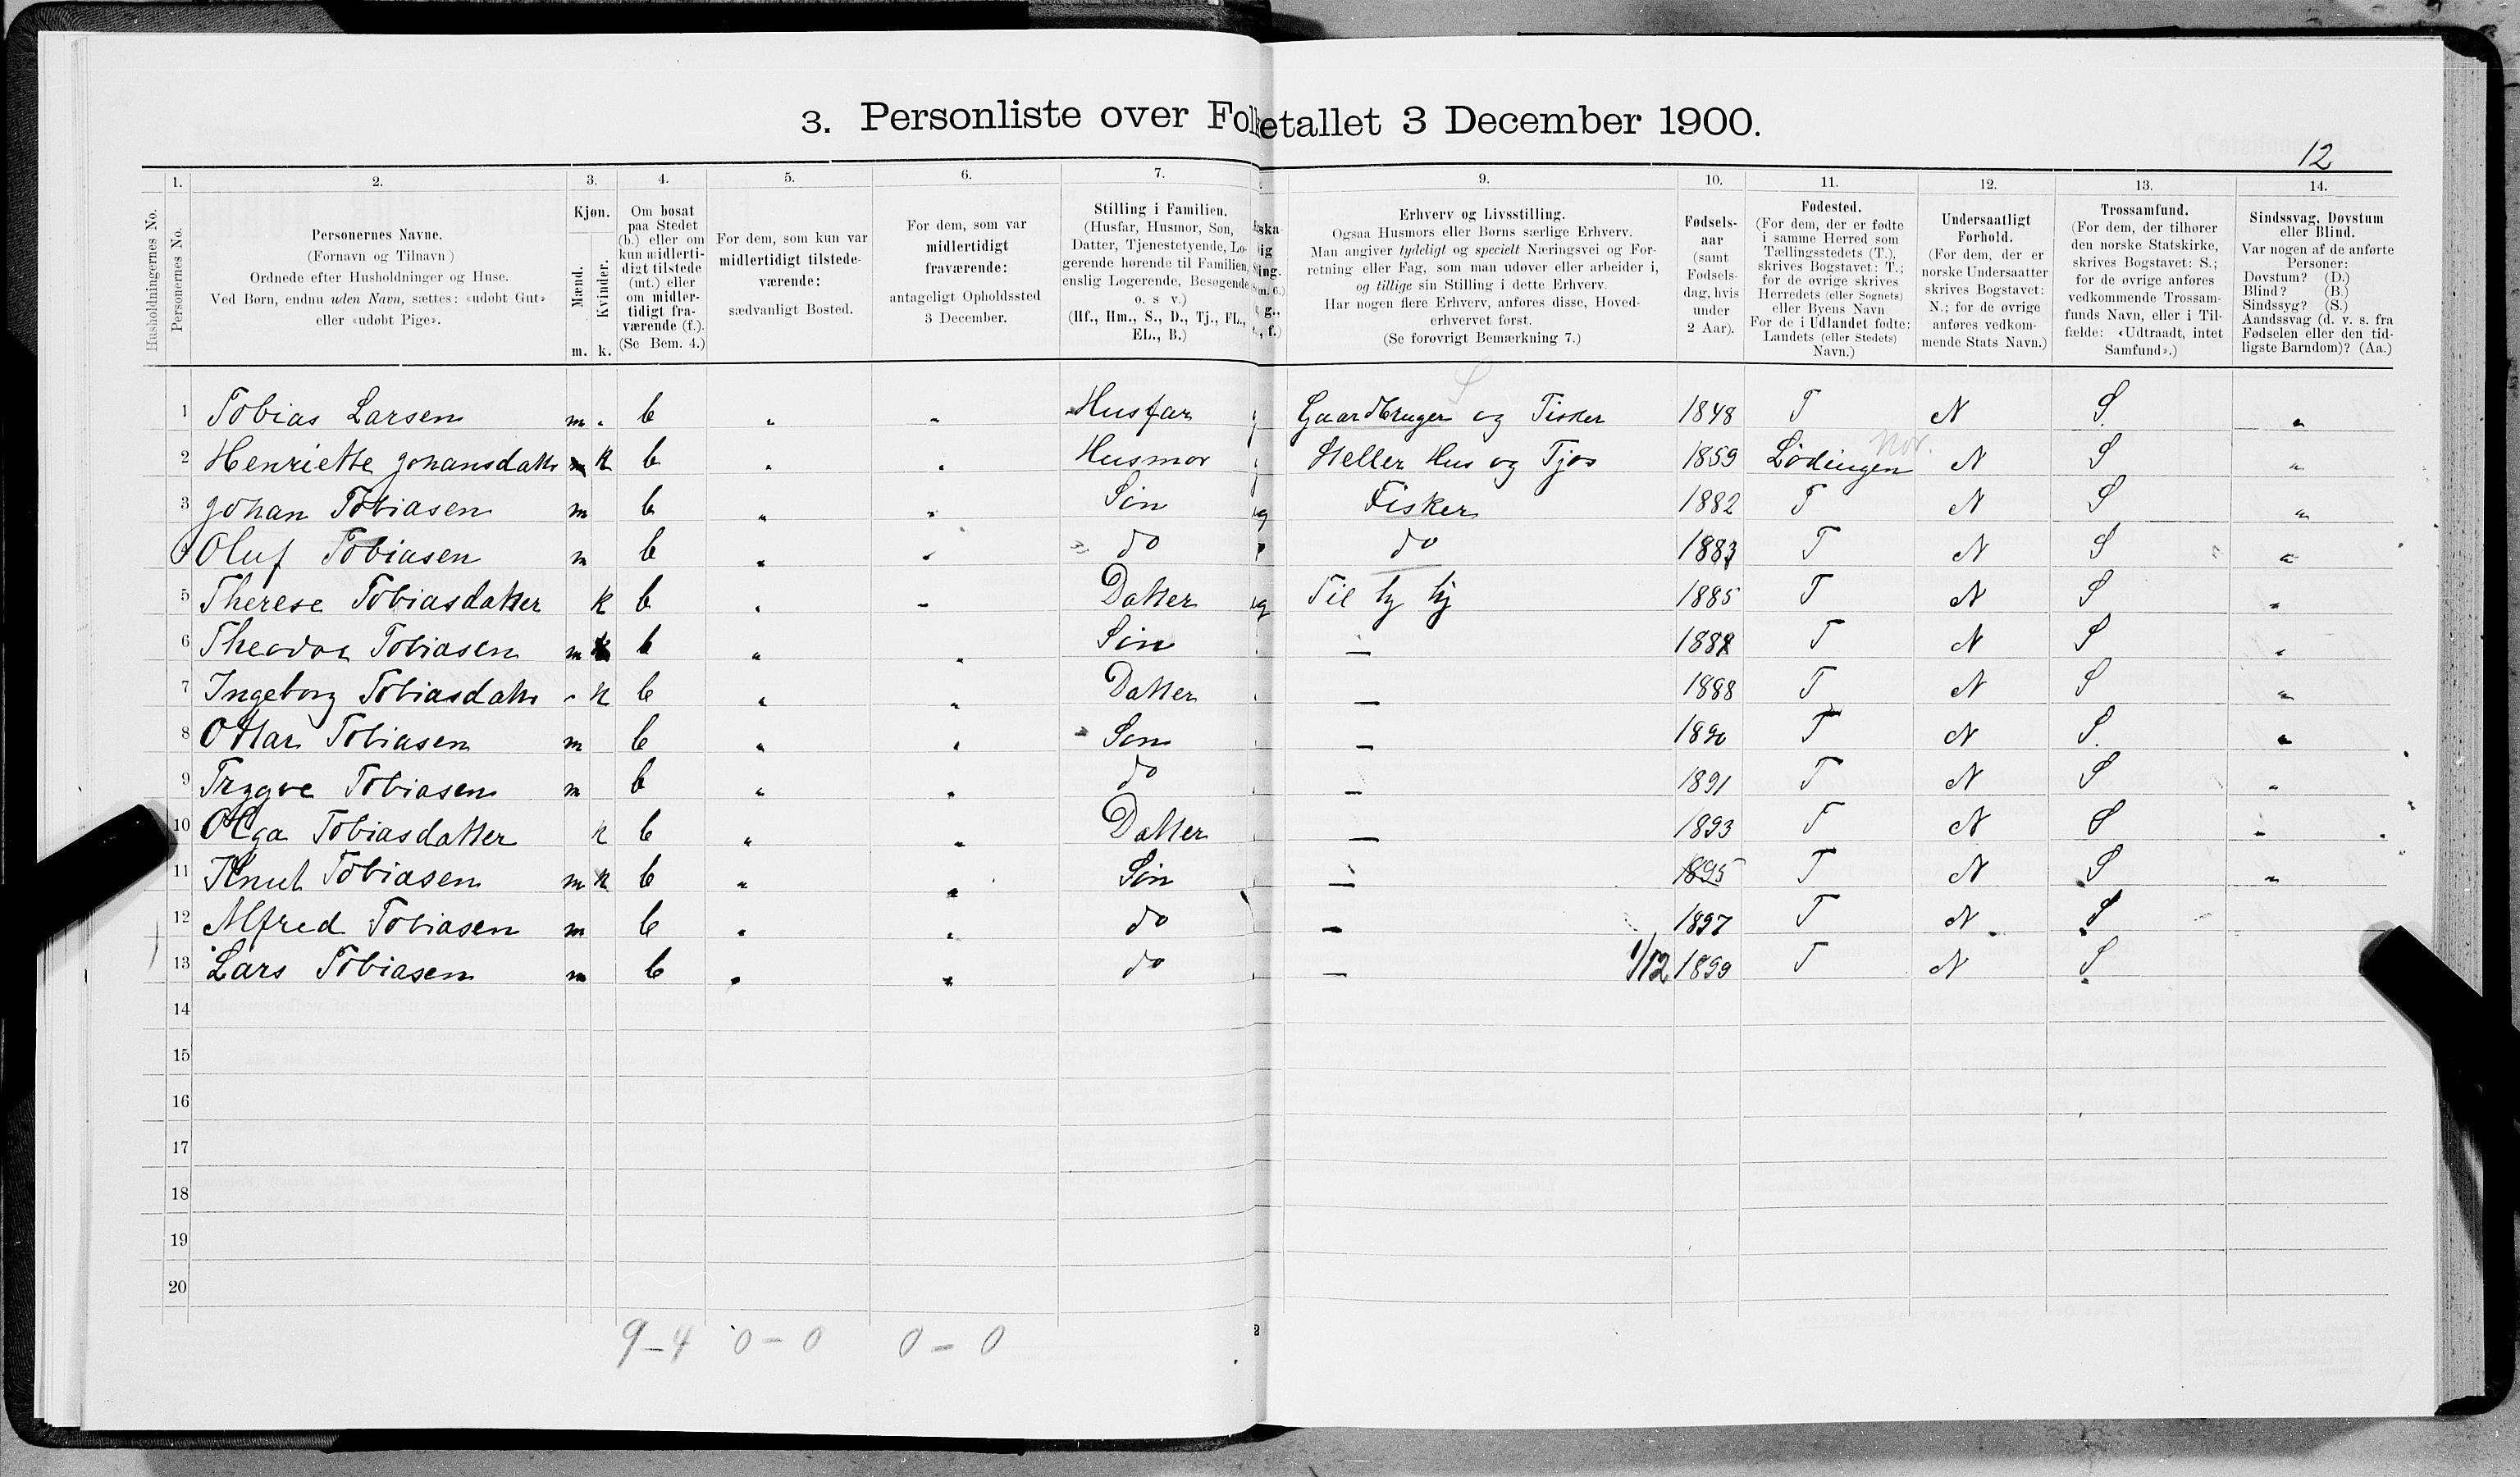 3. Personliste over Folketallet 3 December 1900.
12
1. 2. 3. 4. 5. 6. 7. 9. 10. 11. 12. 13. 14.
Husholdningernes No.
Personernes No.
Personernes Navne.
(Fornavn og Tilnavn)
Ordnede efter Husholdninger og Huse.
Ved Børn, endnu uden Navn, sættes: «udøbt Gut»
eller «udøbt Pige».
Kjøn.
Mænd.
Kvinder.
m. k.
Om bosat
paa Stedet
(b.) eller om
kun midlerti-
digt tilstede
(mt.) eller
om midler-
tidigt fra-
værende (f.).
(Se Bem. 4.)
For dem, som kun var
midlertidigt tilstede-
værende:
sædvanligt Bosted.
For dem, som var
midlertidigt
fraværende:
antageligt Opholdssted
3 December.
Stilling i Familien.
(Husfar, Husmor, Søn,
Datter, Tjenestetyende, Lo-
gerende hørende til Familien,
enslig Logerende, Besøgende
o. s v.)
(Hf., Hm., S., D., Tj., FL.,
EL., B.)
Erhverv og Livsstilling.
Ogsaa Husmors eller Børns særlige Erhverv.
Man angiver tydeligt og specielt Næringsvei og For-
retning eller Fag, som man udøver eller arbeider i,
og tillige sin Stilling i dette Erhverv.
Har nogen flere Erhverv, anføres disse, Hoved-
erhvervet først.
(Se forøvrigt Bemærkning 7.)
Fødsels-
aar
(samt
Fødsels-
dag, hvis
under
2 Aar).
Fødested.
(For dem, der er fødte
i samme Herred som
Tællingsstedets (T.),
skrives Bogstavet: T.;
for de øvrige skrives
Herredets (eller Sognets)
eller Byens Navn
For de i Udlandet fødte:
Landets (eller Stedets)
Navn.)
Undersaatligt
Forhold.
(For dem, der er
norske Undersaatter
skrives Bogstavet:
N.; for de øvrige
anføres vedkom-
mende Stats Navn.)
Trossamfund.
(For dem, der tilhører
den norske Statskirke,
skrives Bogstavet: S.;
for de øvrige anføres
vedkommende Trossam-
funds Navn, eller i Til-
fælde: «Udtraadt, intet
Samfund».)
Sindssvag, Døvstum
eller Blind.
Var nogen af de anførte
Personer:
Døvstum? (D.)
Blind? (B.)
Sindssyg? (S.)
Aandssvag (d. v. s. fra
Fødselen eller den tid-
ligste Barndom)? (Aa.)
1 Tobias Larsen m " b " " Husfar Gaardbruger og Fisker 1848 T N S "
2 Henriette Johansdatter k b " " Husmor Steller Hus og Fjøs 1859 Lødingen Nor. N S "
3 Johan Tobiasen m b " " Søn Fisker 1882 T N S "
Oluf Tobiasen m b " " do do 1883 T N S "
5 Therese Tobiasdatter k b " " Datter Til hj hj 1885 T N S "
6 Theodor Tobiasen m b " " Søn — 1887 T N S "
7 Ingeborg Tobiasdatter " k b " " Datter — 1888 T N S "
8 Ottar Tobiasen m b " " Søn — 1890 T N S "
9 Trygve Tobiasen m b " " do — 1891 T N S "
10 Olga Tobiasdatter k b " " Datter — 1893 T N S "
11 Knut Tobiasen m k b " " Søn — 1895 T N S "
12 Alfred Tobiasen m b " " do — 1897 T N S
13 Lars Tobiasen m b " " do — 1/12 1899 T N S
14
15
16
17
18
19
20
9-4 0-0 0-0